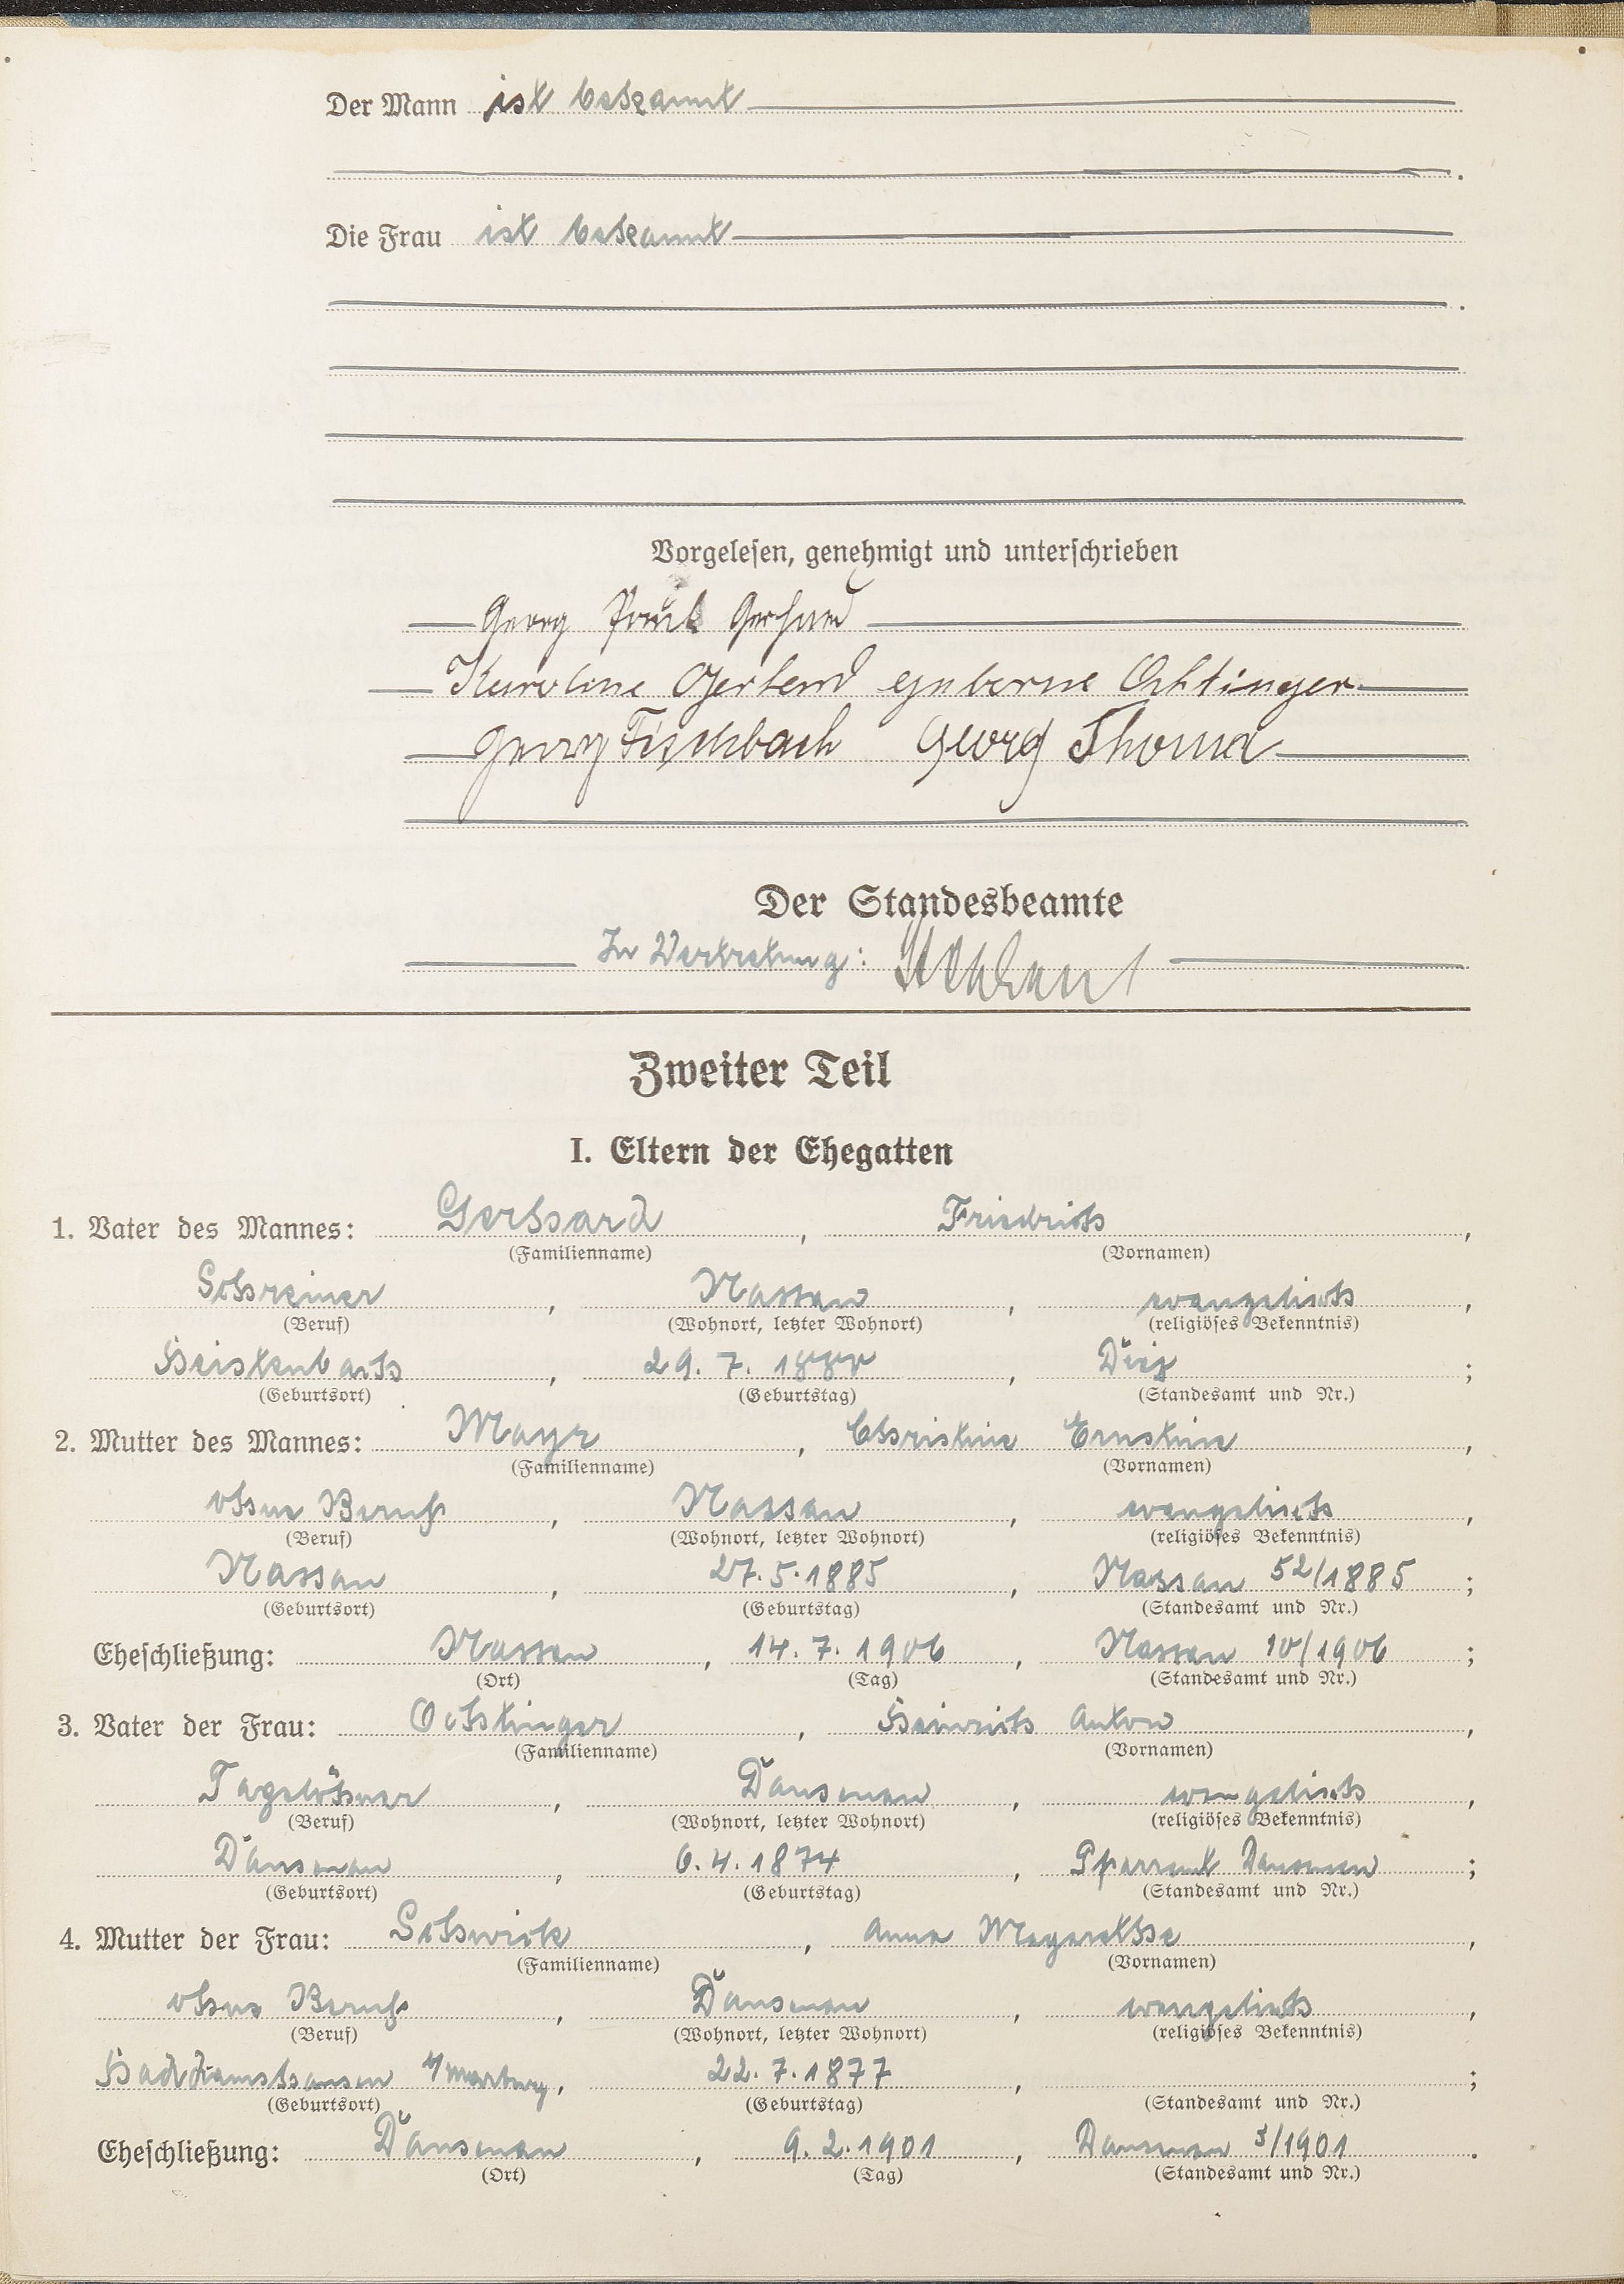 Der Mann ist bekannt
Die Frau ist bekannt
Vorgelesen, genehmigt und unterschrieben
Georg Paul Gerhard
Karoline Gerhard geborne Ochtinger
Georg Fischbach Georg Thoma
Der Standesbeamte
In Vertretung:
Zweiter Teil
I. Eltern der Ehegatten
1. Vater des Mannes: Gerhard, Friedrich,
(Familienname) (Vornamen)
Schreiner, Nassau, evangelisch,
(Beruf) (Wohnort, letzter Wohnort) (religiöses Bekenntnis)
Heistenbach, 29. 7. Diez;
(Geburtsort) (Geburtstag) (Standesamt und Nr.)
2. Mutter des Mannes: Christine Ernstine,
(Familienname) (Vornamen)
ohne Beruf, Nassau, evangelisch,
(Beruf) (Wohnort, letzter Wohnort) (religiöses Bekenntnis)
Nassau, 27. 5. 1885, Nassau 52/1885;
(Geburtsort) (Geburtstag) (Standesamt und Nr.)
Eheschließung: Nassau, 14. 7. 1906, Nassau 10/1906;
(Ort) (Tag) (Standesamt und Nr.)
3. Vater der Frau: Ochtinger, Heinrich Anton,
(Familienname) (Vornamen)
Tagelöhner, Dausenau, evangelisch,
(Beruf) (Wohnort, letzter Wohnort) (religiöses Bekenntnis)
Dausenau, 6. 4. 1874, Pfarramt Dausenau;
(Geburtsort) (Geburtstag) (Standesamt und Nr.)
4. Mutter der Frau: Anna Margarethe,
(Familienname) (Vornamen)
ohne Beruf, Dausenau, evangelisch,
(Beruf) (Wohnort, letzter Wohnort) (religiöses Bekenntnis)
22. 7. 1877, ;
(Geburtsort) (Geburtstag) (Standesamt und Nr.)
Eheschließung: Dausenau, 9. 2. 1901, Dausenau 3/1901.
(Ort) (Tag) (Standesamt und Nr.)